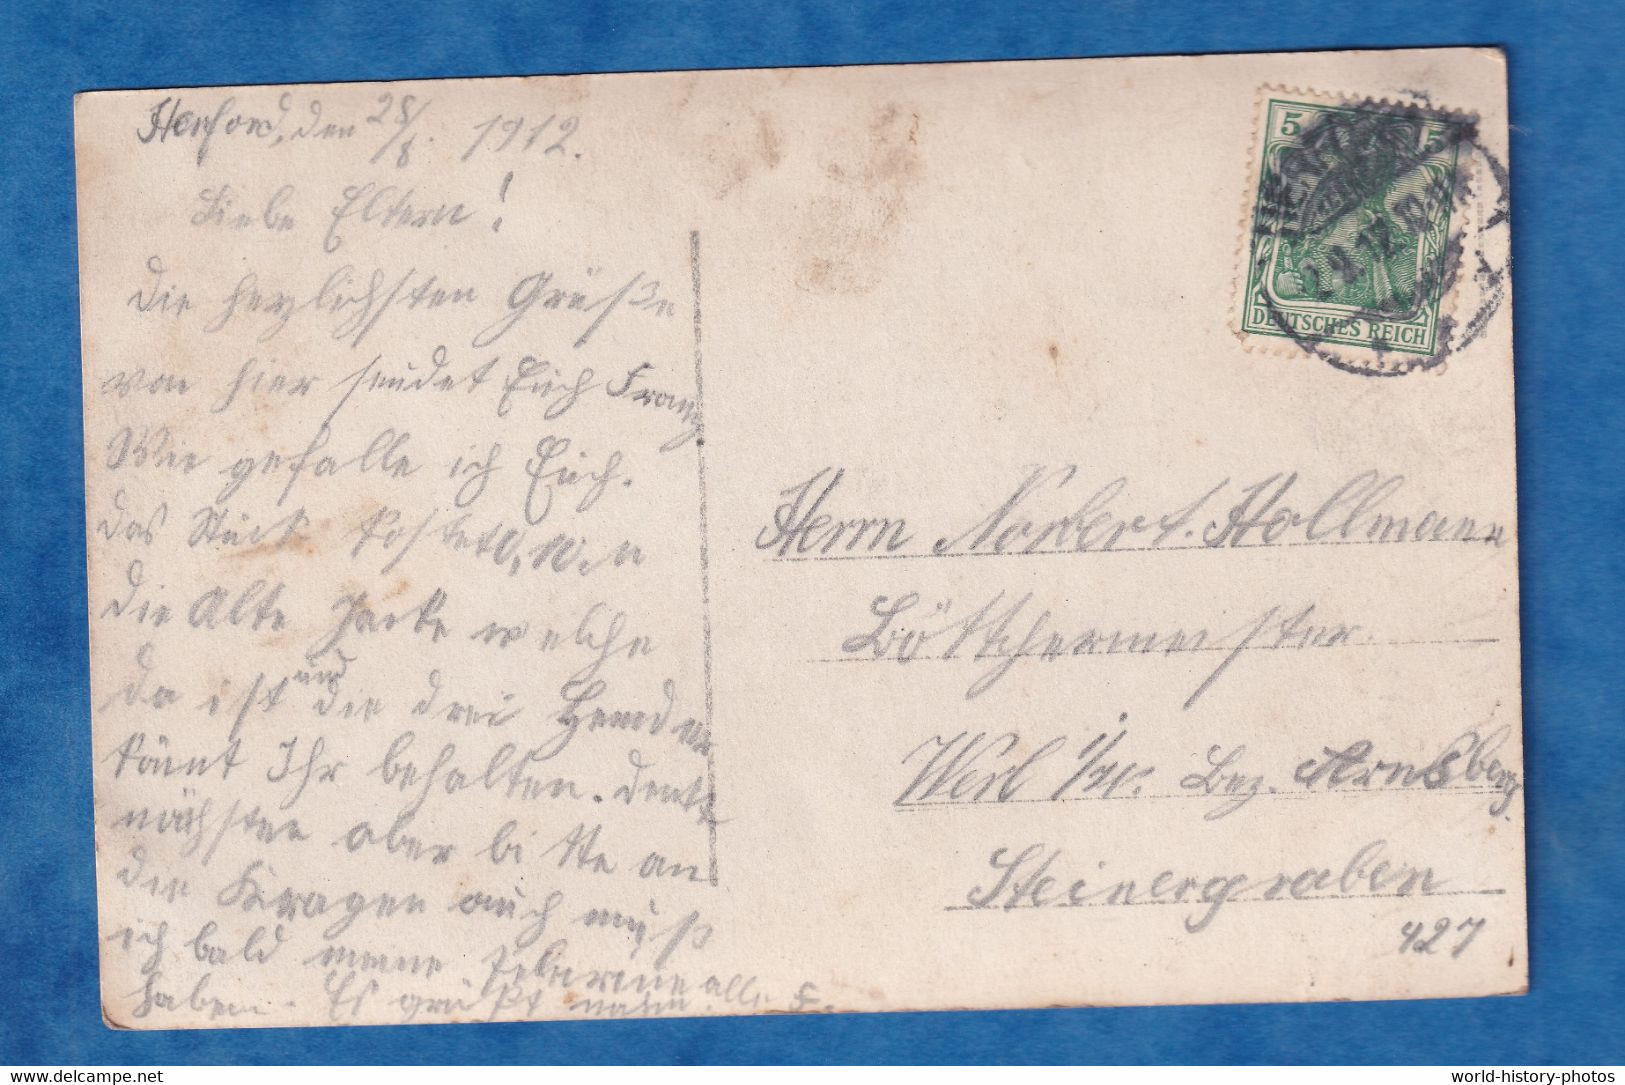 Herford, den 28/8. 1912.
Liebe Eltern!
Die herzlichsten Grüße
von hier sendet Euch Franz
Wie gefalle ich Euch.
Das Stück kostet 0,10. 
Die Alte Jacke welche
da ist und die drei Hemden
könnt Ihr behalten. Denkt
nächsten aber bitte an
die Kragen auch muß
ich bald meine Pelerine
haben. Es grüßt alle F.
5 5
DEUTSCHES REICH
HERFORD
2.9.12.
Herrn Norbert. Hollmann
Böttchermeister
Werl i/W. Bez. Arnsberg.
Steinergraben
427
© delcampe.net
world-history-photos